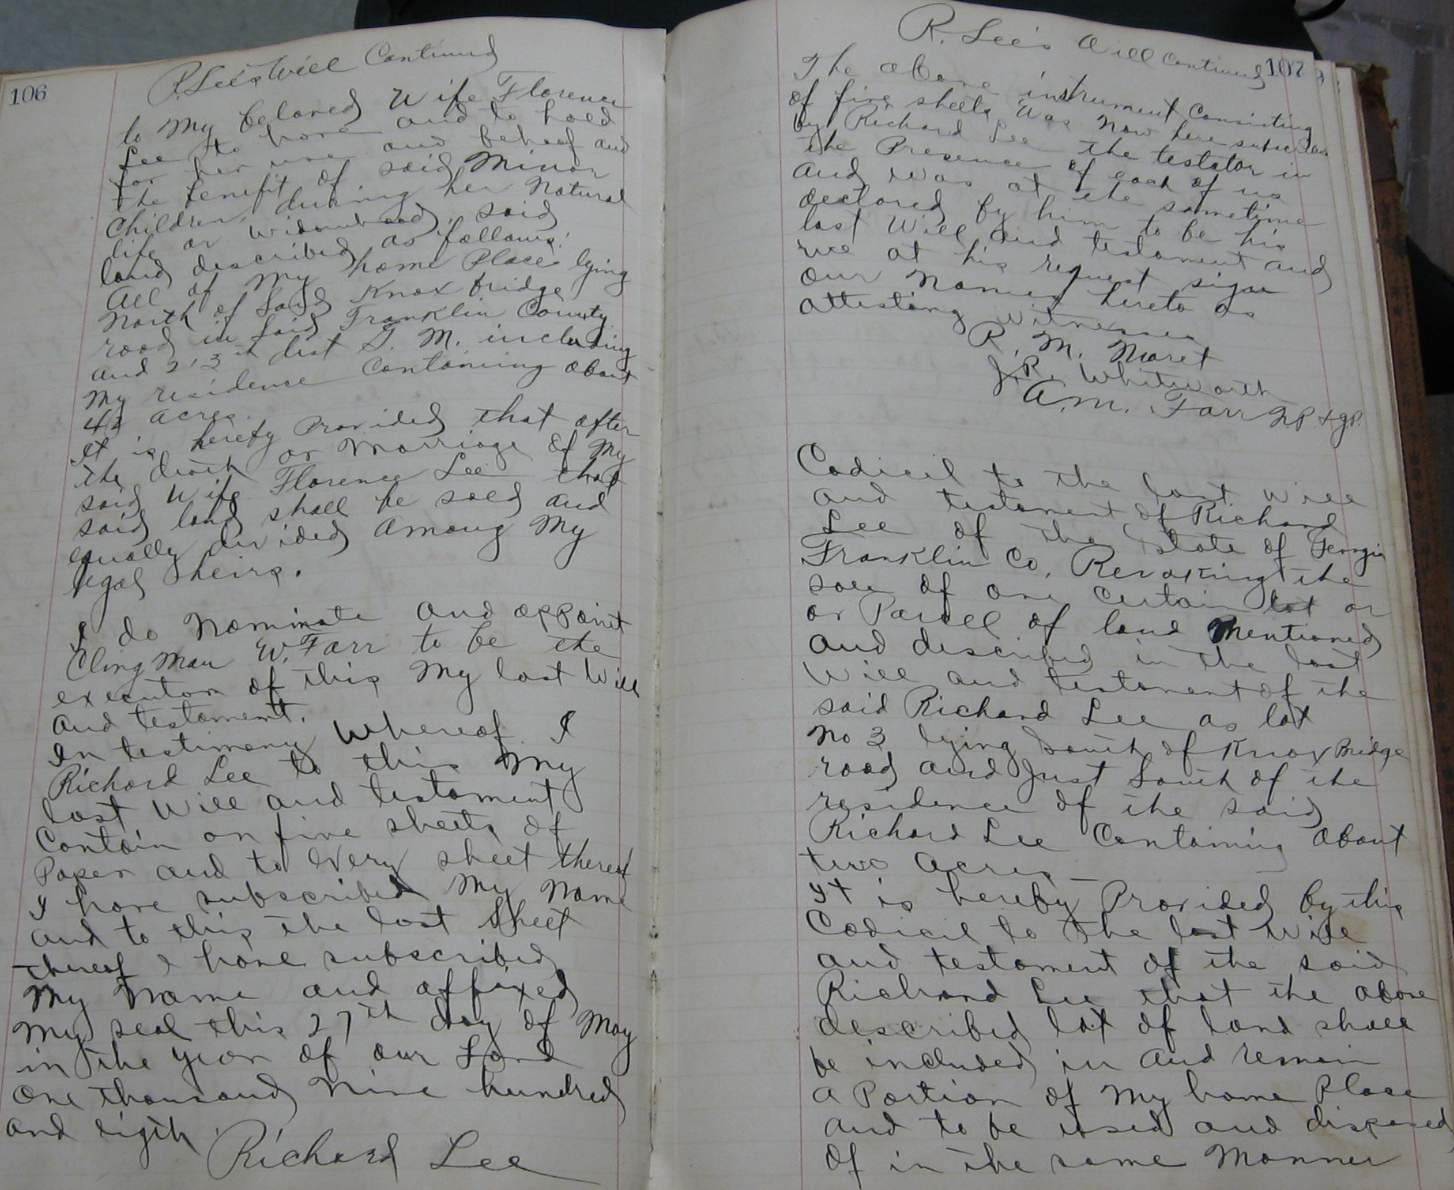 106
R. Lee's Will Continued
to My beloved Wife Florence
Lee to have and to hold
for her use and behoof and
the benefit of said Minor
Children during her Natural
life or widowhood, said
land described as follows:
All of My home Place lying
North of Said Knox bridge
road in Said Franklin County
and 213th dist G. M. including
My residence Containing about
42 acres.
It is hereby Provided that after
the death or Marriage of My
said Wife Florence Lee that
said land shall be sold and
equally divided Among My
legal heirs.
I do Nominate and appoint
Clingman W. Farr to be the
executor of this My last Will
and testament.
In testimony Whereof I
Richard Lee to this My
last Will and testament
Contain on five sheets of
Paper and to Every sheet thereof
I have subscribed My Name
and to this the last Sheet
thereof I have subscribed
My Name and affixed
My seal this 27th day of May
in the year of our Lord
One thousand Nine hundred
and eigth.
Richard Lee
R. Lee's Will Continued
107
The above instrument Consisting
of five sheets Was Now here
by Richard Lee the testator in
the Presence of each of us
and was at the sametime
declared by him to be his
last Will and testament and
we at his request sign
our Names hereto as
attesting witnesses
R. M. Maret
J. R. Whitworth
A. M. Farr NP & JP.
Codicil to the last Will
and testament of Richard
Lee of the State of Georgia
Franklin Co. Revoking the
sale of one certain lot or
or Parcell of land Mentioned
and described in the last
Will and testament of the
said Richard Lee as lot
No 3 lying South of Knox Bridge
road and Just South of the
residence of the said
Richard Lee Containing about
two acres
It is hereby Provided by this
Codicil to the last Will
and testament of the said
Richard Lee that the above
described lot of land shall
be included in and remain
a Portion of My home Place
and to be used and disposed
of in the same Manner